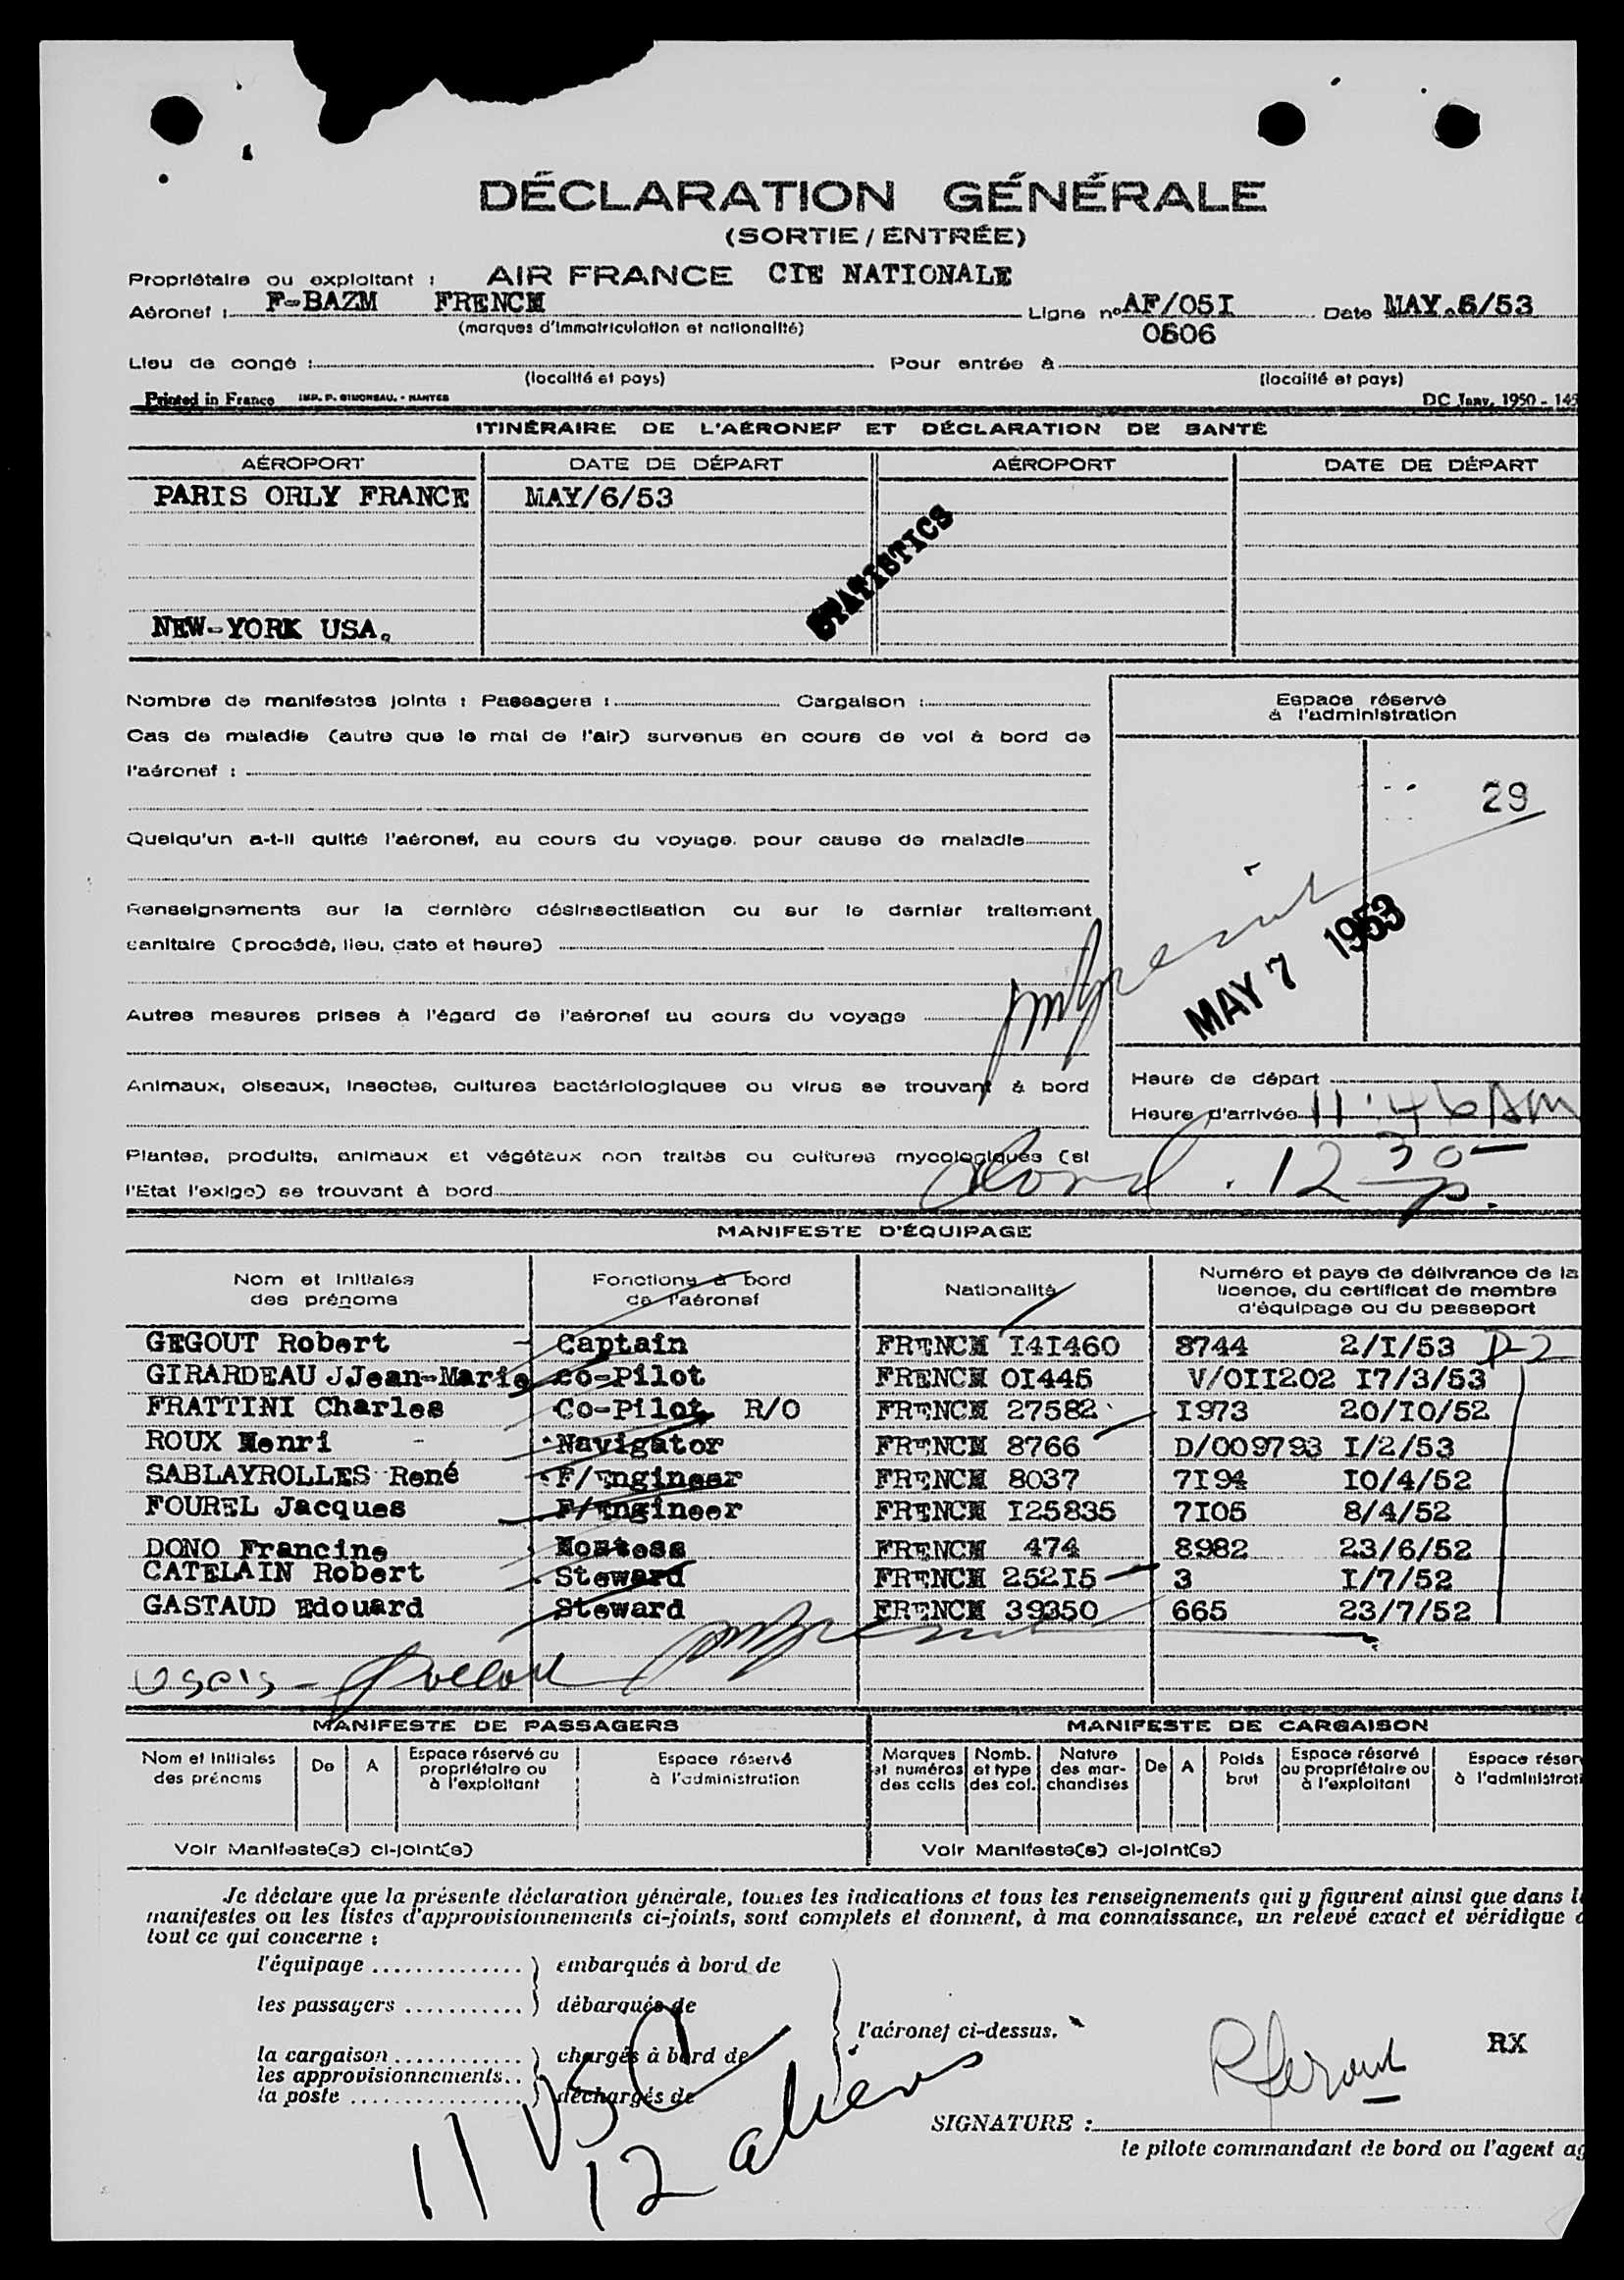 DÉCLARATION GÉNÉRALE
(SORTIE / ENTRÉE)
Propriétaire ou exploitant : AIR FRANCE CIE NATIONALE
Aéronef : F-BAZM FRENCH Ligne nº AF/05I Date MAY.6/53
(marques d'immatriculation et nationalité) 0606
Lieu de congé : Pour entrée à
(localité et pays) (localité et pays)
Printed in France IMP. P. GIMONSAU. - NANTES DC Janv. 1950 - 145
ITINÉRAIRE DE L'AÉRONEF ET DÉCLARATION DE SANTÉ
AÉROPORT DATE DE DÉPART AÉROPORT DATE DE DÉPART
PARIS ORLY FRANCE MAY/6/53
STATISTICS
NEW-YORK USA.
Nombre de manifestes joints : Passagers : Cargaison :
Espace réservé
à l'administration
Cas de maladie (autre que le mal de l'air) survenus en cours de vol à bord de
l'aéronef :
29
Quelqu'un a-t-il quitté l'aéronef, au cours du voyage, pour cause de maladie
Renseignements sur la dernière désinsectisation ou sur le dernier traitement
sanitaire (procédé, lieu, date et heure)
MAY 7 1953
Autres mesures prises à l'égard de l'aéronef au cours du voyage
Animaux, oiseaux, insectes, cultures bactériologiques ou virus se trouvant à bord
Heure de départ
Heure d'arrivée 11:46 AM
Plantes, produits, animaux et végétaux non traités ou cultures mycologiques (si
l'Etat l'exige) se trouvant à bord
12 30 p.
MANIFESTE D'ÉQUIPAGE
Nom et initiales des prénoms
Fonctions à bord de l'aéronef
Nationalité
Numéro et pays de délivrance de la licence, du certificat de membre d'équipage ou du passeport
GEGOUT Robert Captain FRENCH I4I460 8744 2/I/53 D-2
GIRARDEAU JJean-Marie co-Pilot FRENCH 0I445 V/0II202 I7/3/53
FRATTINI Charles Co-Pilot R/O FRENCH 27582 I973 20/I0/52
ROUX Henri Navigator FRENCH 8766 D/009793 I/2/53
SABLAYROLLES René F/Engineer FRENCH 8037 7I94 I0/4/52
FOUREL Jacques F/Engineer FRENCH I25835 7I05 8/4/52
DONO Francine Hostess FRENCH 474 8982 23/6/52
CATELAIN Robert Steward FRENCH 252I5 3 I/7/52
GASTAUD Edouard Steward FRENCH 39350 665 23/7/52
MANIFESTE DE PASSAGERS MANIFESTE DE CARGAISON
Nom et initiales des prénoms De A Espace réservé au propriétaire ou à l'exploitant Espace réservé à l'administration
Marques et numéros des colis Nomb. et type des col. Nature des marchandises De A Poids brut Espace réservé au propriétaire ou à l'exploitant Espace réser à l'administrati
Voir Manifeste(s) ci-joint(s) Voir Manifeste(s) ci-joint(s)
Je déclare que la présente déclaration générale, toutes les indications et tous les renseignements qui y figurent ainsi que dans l
manifestes ou les listes d'approvisionnements ci-joints, sont complets et donnent, à ma connaissance, un relevé exact et véridique
tout ce qui concerne :
l'équipage embarqués à bord de
les passagers débarqués de
l'aéronef ci-dessus.
la cargaison chargés à bord de
les approvisionnements..
la poste déchargés de
RX
11 USC
12 aliens
SIGNATURE :
le pilote commandant de bord ou l'agent ag